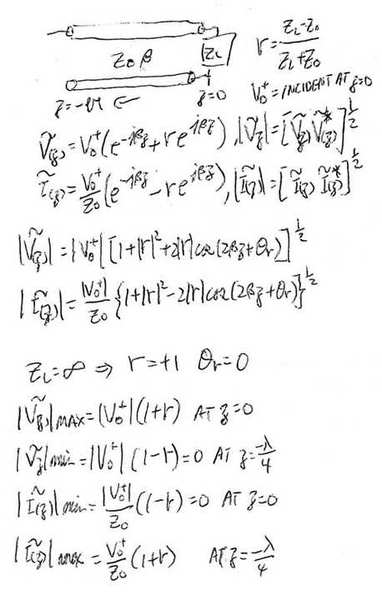 Z₀ β
Z_L
Γ = (Z_L - Z₀)/(Z_L + Z₀)
z = -l
z=0
V₀⁺ = INCIDENT AT z=0
Ṽ(z) = V₀⁺(e^{-jβz} + Γe^{jβz}), |Ṽ(z)| = [Ṽ(z) Ṽ(z)*]^{1/2}
Ĩ(z) = V₀⁺/Z₀ (e^{-jβz} - Γe^{jβz}), |Ĩ(z)| = [Ĩ(z) Ĩ(z)*]^{1/2}
|Ṽ(z)| = |V₀⁺| [1+|Γ|²+2|Γ|cos(2βz+θr)]^{1/2}
|Ĩ(z)| = |V₀⁺|/Z₀ {1+|Γ|²-2|Γ|cos(2βz+θr)}^{1/2}
Z_L = ∞ ⇒ Γ = +1 θr = 0
|Ṽ(z)|max = |V₀⁺|(1+Γ) AT z=0
|Ṽ(z)|min = |V₀⁺|(1-Γ) = 0 AT z = -λ/4
|Ĩ(z)|min = |V₀⁺|/Z₀ (1-Γ) = 0 AT z=0
|Ĩ(z)|max = V₀⁺/Z₀ (1+Γ) AT z = -λ/4